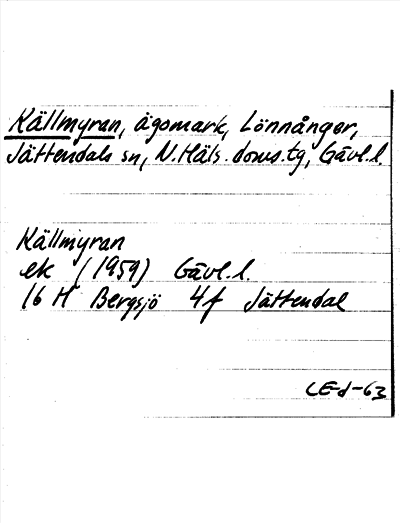 Källmyran, ägomark, Lönnånger,
Jättendals sn, N.Häls.doms.tg, Gävl.l.
Källmyran
ek (1959) Gävl.l.
16 H Bergsjö 4f Jättendal
LE-d-63